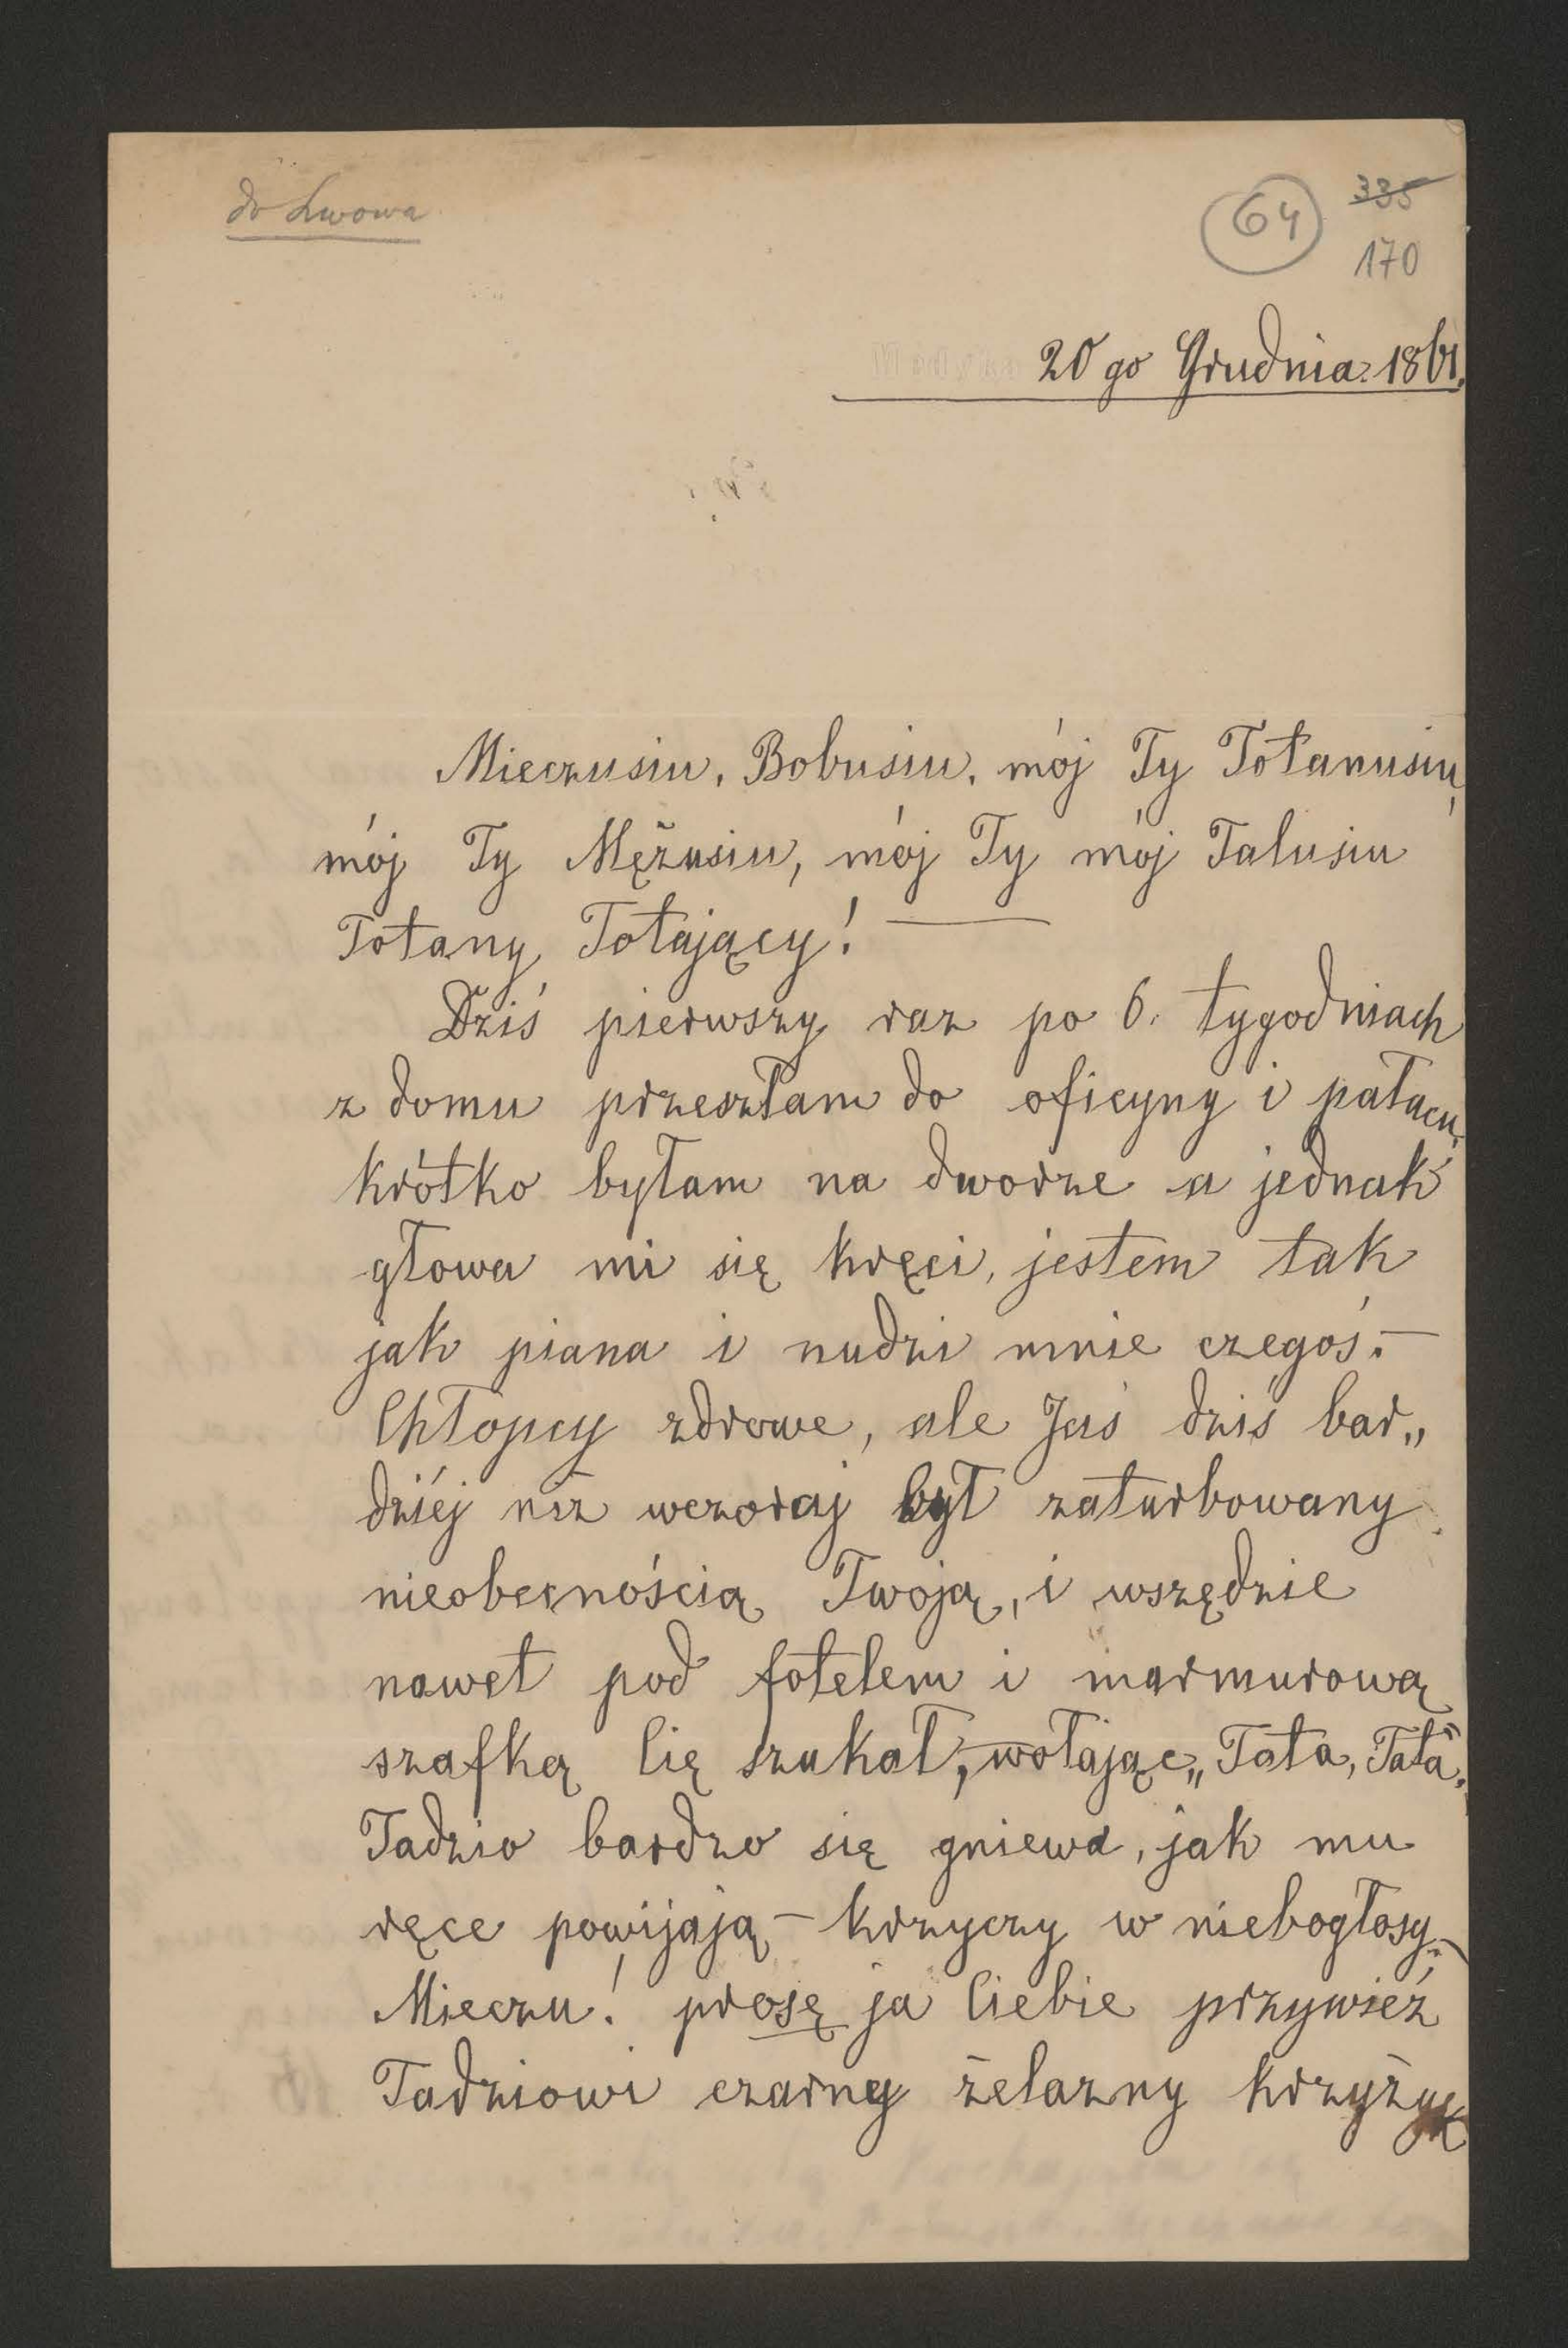 do Lwowa
64
335
170
20 go Grudnia 1861.
Mieczusiu, Bobusiu, mój Ty Totanusiu,
mój Ty Mężusiu, mój Ty mój Talusiu
Totany Totający! —
Dziś pierwszy raz po 6. tygodniach
z domu przeszłam do oficyny i pałacu,
krótko byłam na dworze a jednak
głowa mi się kręci, jestem tak
jak piana i nudzi mnie czegoś. —
Chłopcy zdrowe, ale Jaś dziś bar„
dziéj niż wczoraj był zaturbowany
nieobecnością Twoją, i wszędzie
nawet pod fotelem i marmurową
szafką Cię szukał, wołając „Tata, Tata".
Tadzio bardzo się gniewa, jak mu
ręce powijają — krzyczy w niebogłosy. —
Mieczu! proszę ja Ciebie przywieź
Tadziowi czarny żelazny krzyżyk